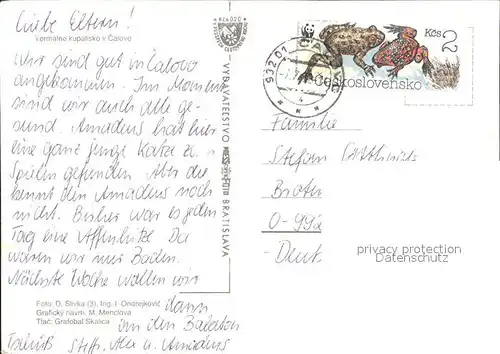 Liebe Eltern!
termálne kúpalisko v Čalove
Wir sind gut in Čalovo
angekommen. Im Moment
sind wir auch alle ge-
sund. Amadeus hat hier
eine ganz junge Katze z.
Spielen gefunden. Aber die
kennt den Amadeus noch
nicht. Bisher war es jeden
Tag eine Affenhitze. Da
waren wir nur Baden.
Nächste Woche wollen wir
dann
an den Balaton
Tschüß Steffi, Alex u. Amadeus
Foto: D. Slivka (3), Ing. I. Ondrejkovič
Grafický navrh: M. Menclova
Tlač: Grafobal Skalica
VYDAVATEĽSTVO
BRATISLAVA
932 01
Československo
Kčs 2
Familie
Stefan
O-992
privacy protection